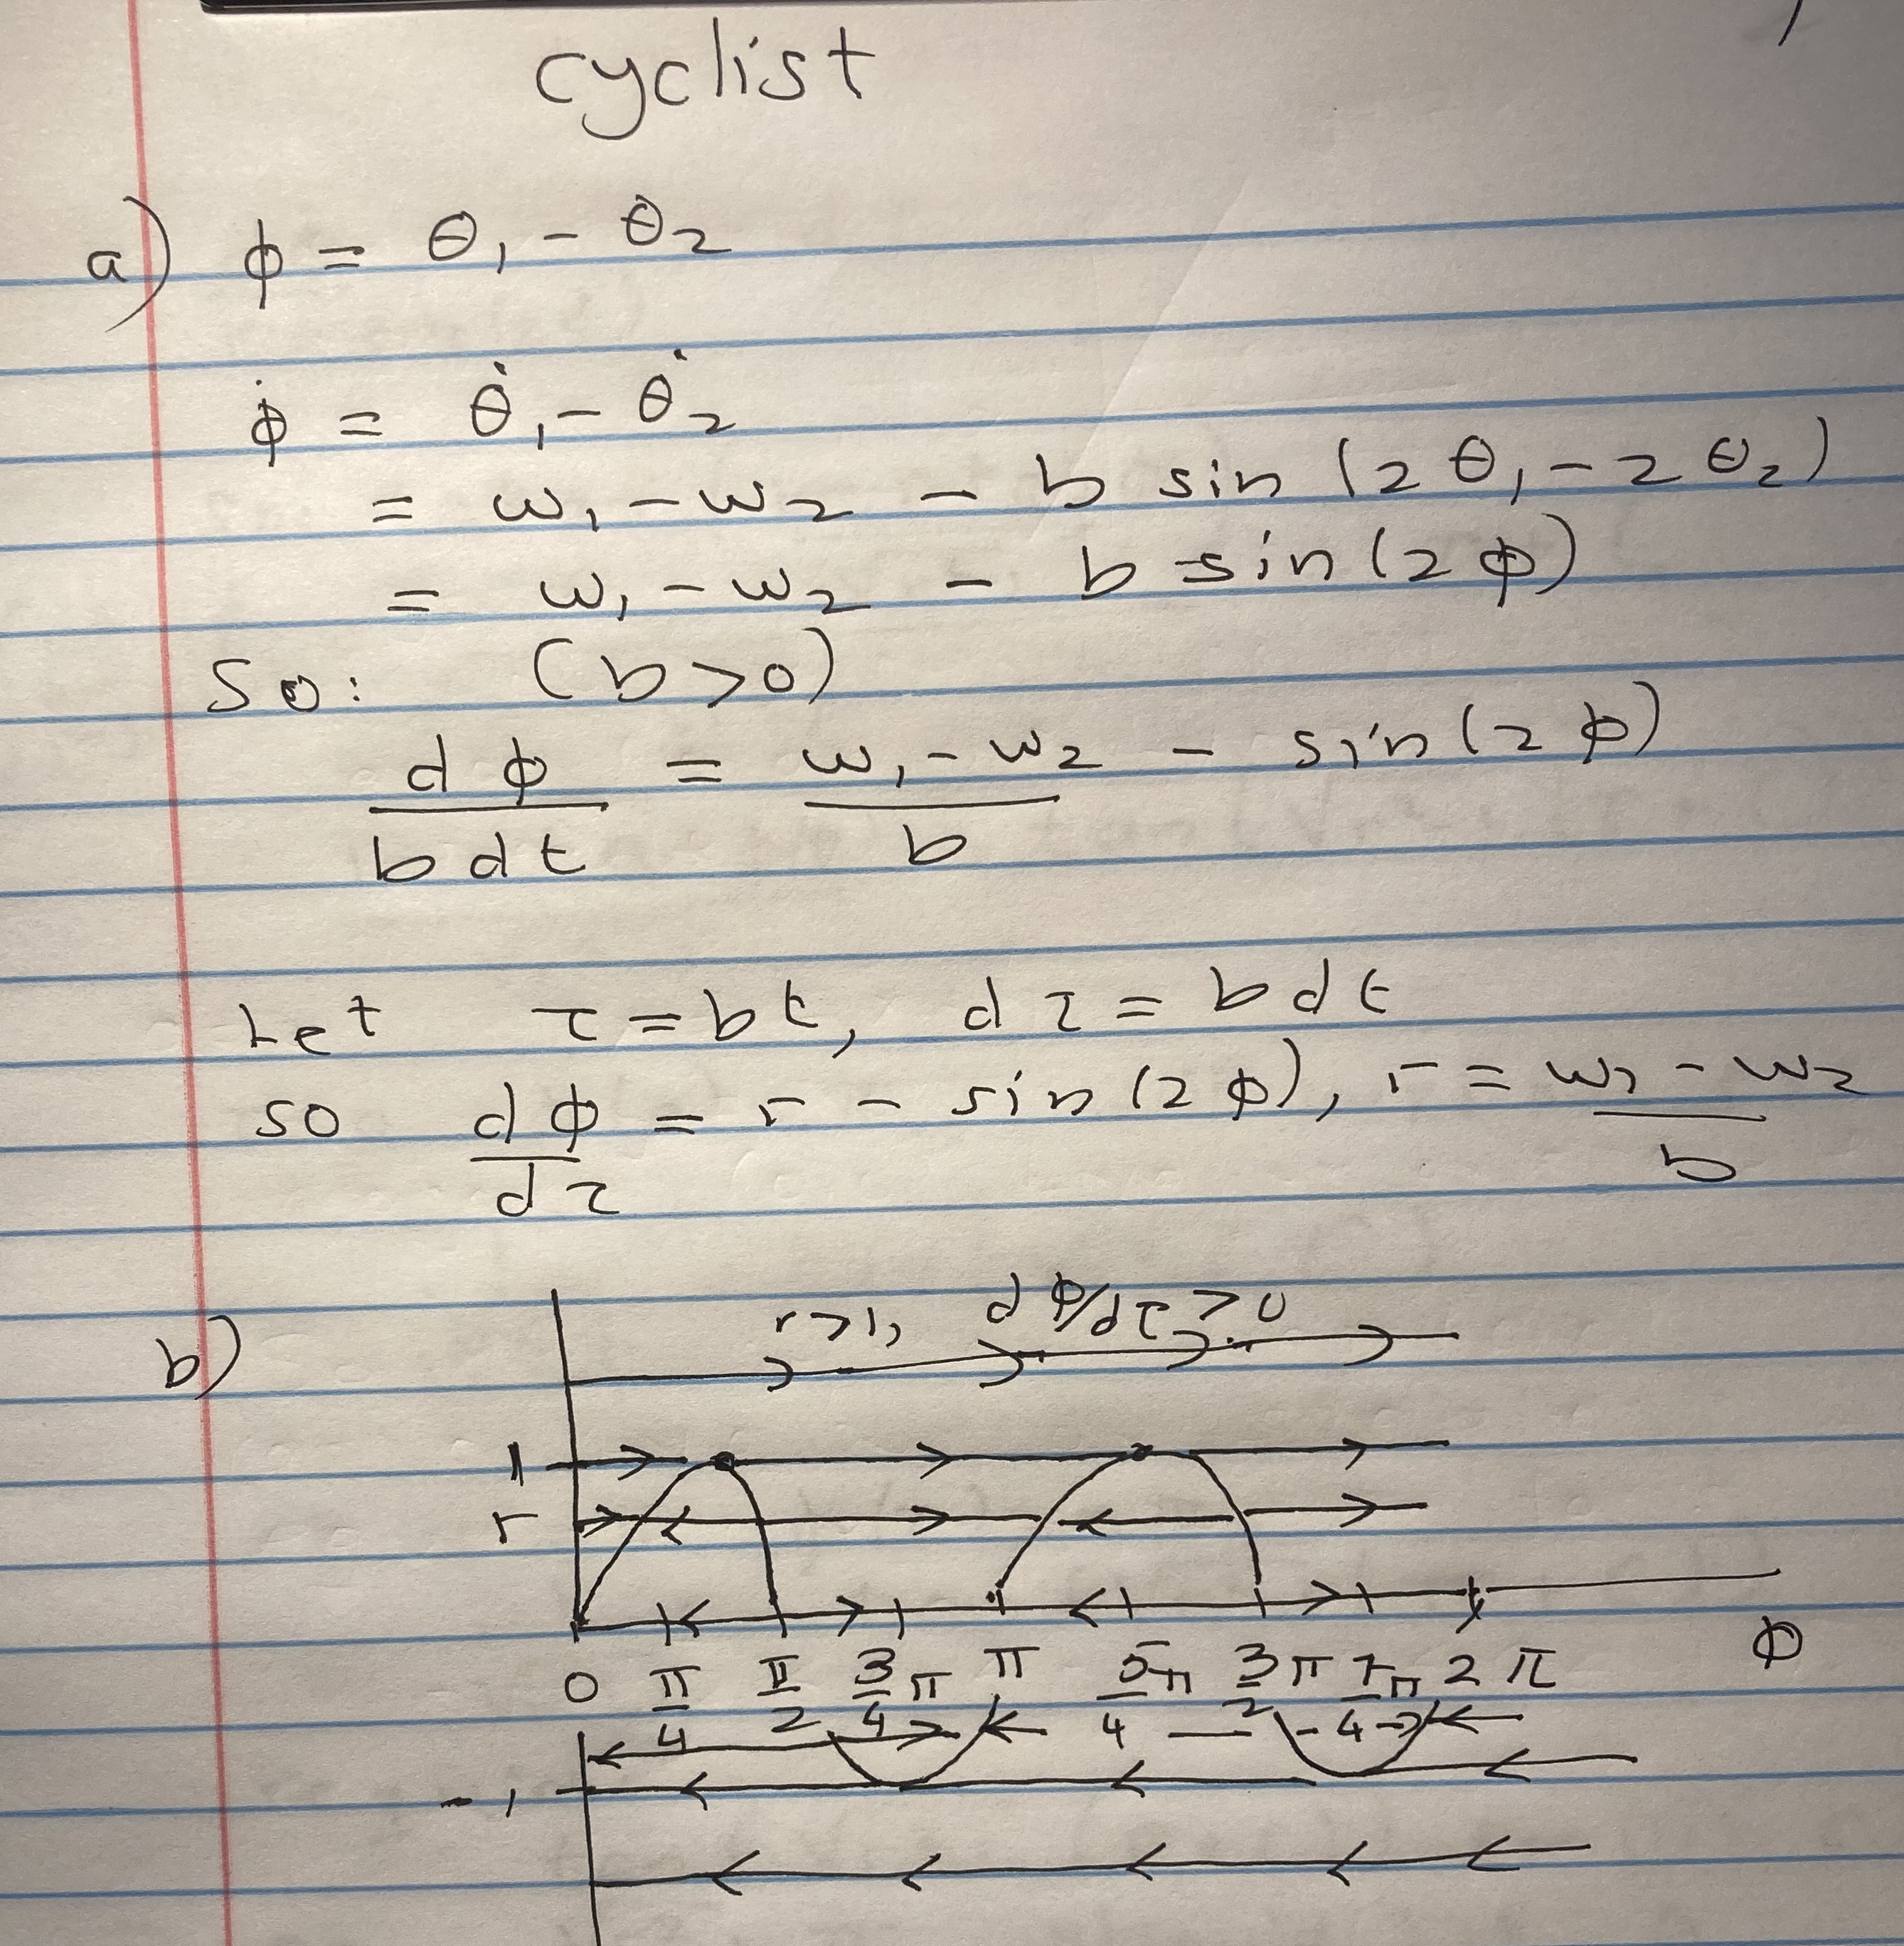 cyclist
a) ϕ = θ₁ - θ₂
ϕ̇ = θ̇₁ - θ̇₂
= ω₁ - ω₂ - b sin (2θ₁ - 2θ₂)
= ω₁ - ω₂ - b sin (2ϕ)
So: (b > 0)
dϕ/(b dt) = (ω₁ - ω₂)/b - sin (2ϕ)
Let τ = bt, dτ = b dt
so dϕ/dτ = r - sin (2ϕ), r = (ω₁ - ω₂)/b
b) r > 1, dϕ/dτ > 0
1
r
ϕ
0 π/4 π/2 3/4 π π 5/4 π 3/2 π 7/4 π 2π
-1